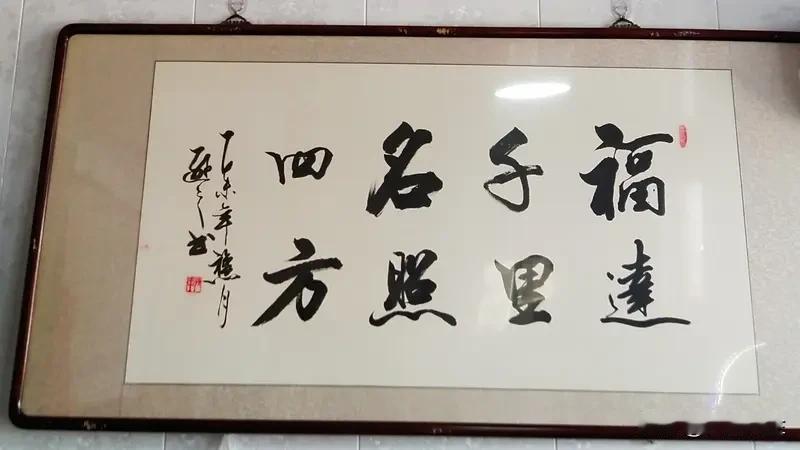 福達
千里
名照
四方
丁未年穐月
書